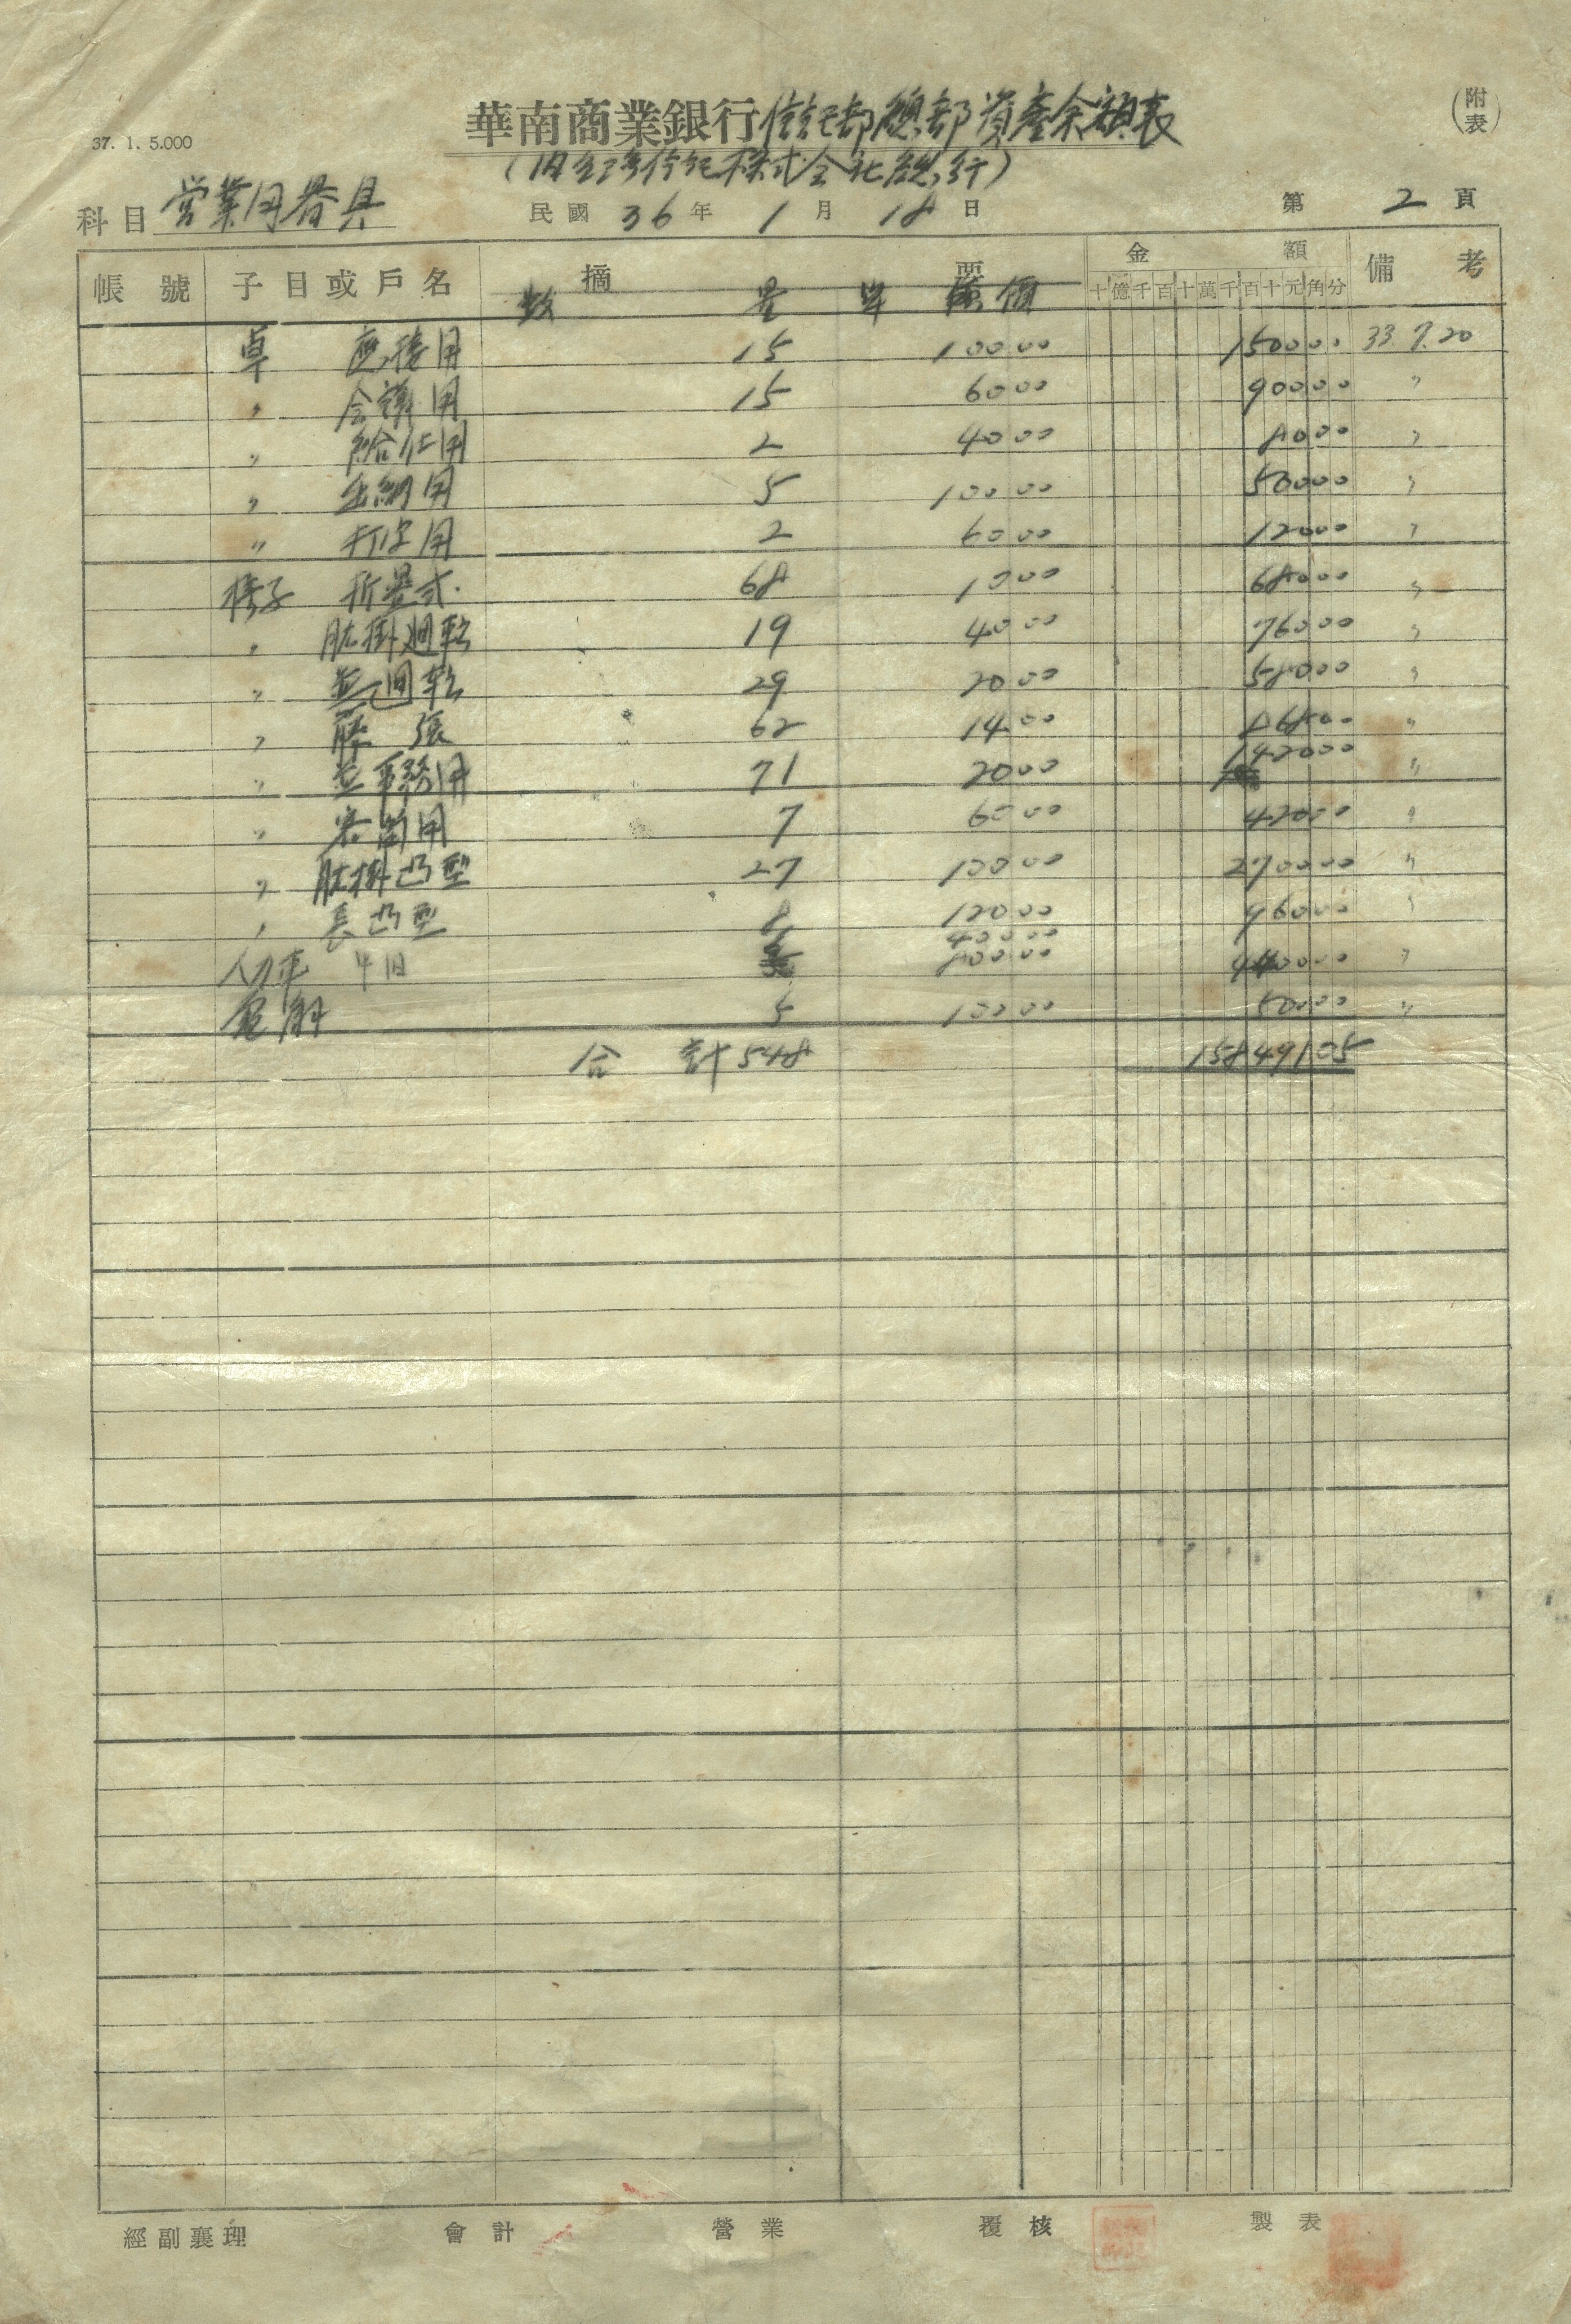 37. 1. 5.000
華南商業銀行信託部總部資產余額表
(附表)
(旧台湾信託株式会社總行)
科目 営業用器具
民國 36 年 1 月 18 日
第 2 頁
帳號 子目或戶名 摘要 金額 備考
數量 單價 十億千百十萬千百十元角分
卓 應接用 15 100 00 1500 00 33 7.20
〃 会議用 15 60 00 900 00 〃
〃 給仕用 2 40 00 80 00 〃
〃 出納用 5 100 00 500 00 〃
〃 打字用 2 60 00 120 00 〃
椅子 折疊式 68 10 00 680 00 〃
〃 肱掛廻転 19 40 00 760 00 〃
〃 並廻転 29 20 00 580 00 〃
〃 藤張 62 14 00 868 00 〃
〃 並事務用 71 20 00 1420 00 〃
〃 客筒用 7 60 00 420 00 〃
〃 肱掛凸型 27 100 00 2700 00 〃
〃 長凸型 8 120 00 960 00 〃
人力車 400 00
800 00 〃
5 100 00 500 00 〃
合計 548 158491 05
經副襄理 會計 營業 覆核 製表